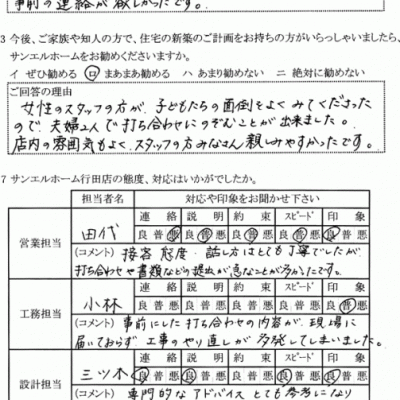 事前の連絡が欲しかったです。
3 今後、ご家族や知人の方で、住宅の新築のご計画をお持ちの方がいらっしゃいましたら、
サンエルホームをお勧めくださいますか。
イ ぜひ勧める ロ まあまあ勧める ハ あまり勧めない ニ 絶対に勧めない
ご回答の理由
女性のスタッフの方が、子どもたちの面倒をよくみてくださった
ので、夫婦2人で打ち合わせにのぞむことが出来ました。
店内の雰囲気もよく、スタッフの方みなさん親しみやすかったです。
7 サンエルホーム行田店の態度、対応はいかがでしたか。
担当者名 対応や印象をお聞かせ下さい
連絡 説明 約束 スピード 印象
営業担当 田代 良普悪 良普悪 良普悪 良普悪 良普悪
(コメント) 接客態度・話し方はとても丁寧でしたが、
打ち合わせや書類などの提出が急なことが多かったです。
連絡 説明 約束 スピード 印象
工務担当 小林 良普悪 良普悪 良普悪 良普悪 良普悪
(コメント) 事前にした打ち合わせの内容が、現場に
届いておらず、工事のやり直しが多発してしまいました。
連絡 説明 約束 スピード 印象
設計担当 三ツ木 良普悪 良普悪 良普悪 良普悪 良普悪
(コメント) 専門的なアドバイスとても参考になり